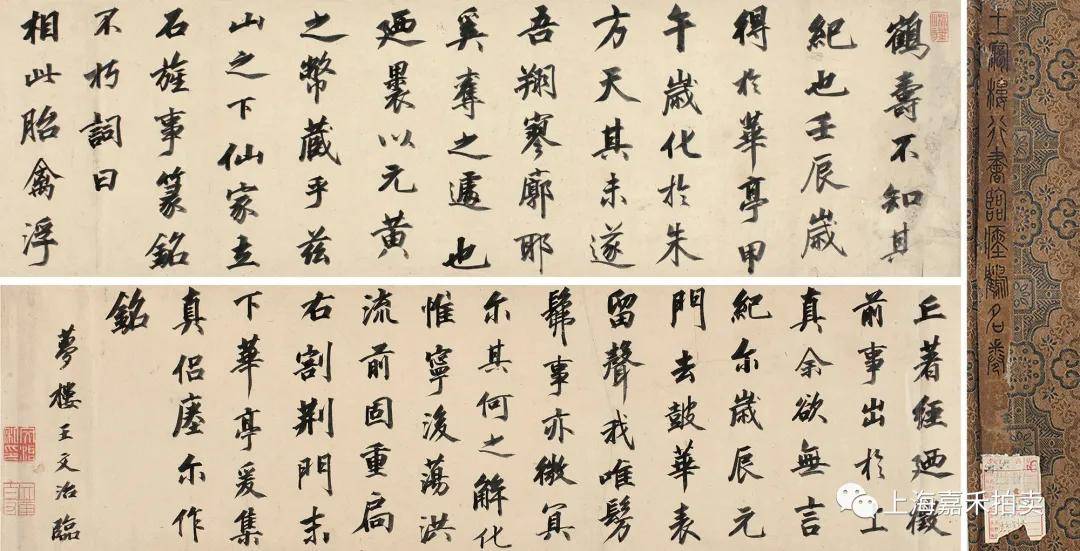 鶴壽不知其
紀也壬辰歲
得於華亭甲
午歲化於朱
方天其未遂
吾翔寥廓耶
奚奪之遽也
廼裹以元黃
之幣藏乎茲
山之下仙家立
石旌事篆銘
不朽詞曰
相此胎禽浮
丘著經廼徵
前事出於上
真余欲無言
紀尔歲辰元
門去鼓華表
留聲我唯髣
髴事亦微冥
尔其何之解化
惟寧後蕩洪
流前固重扃
右割荊門未
下華亭爰集
真侣瘞尔作
銘
夢樓王文治臨
上海嘉禾拍卖